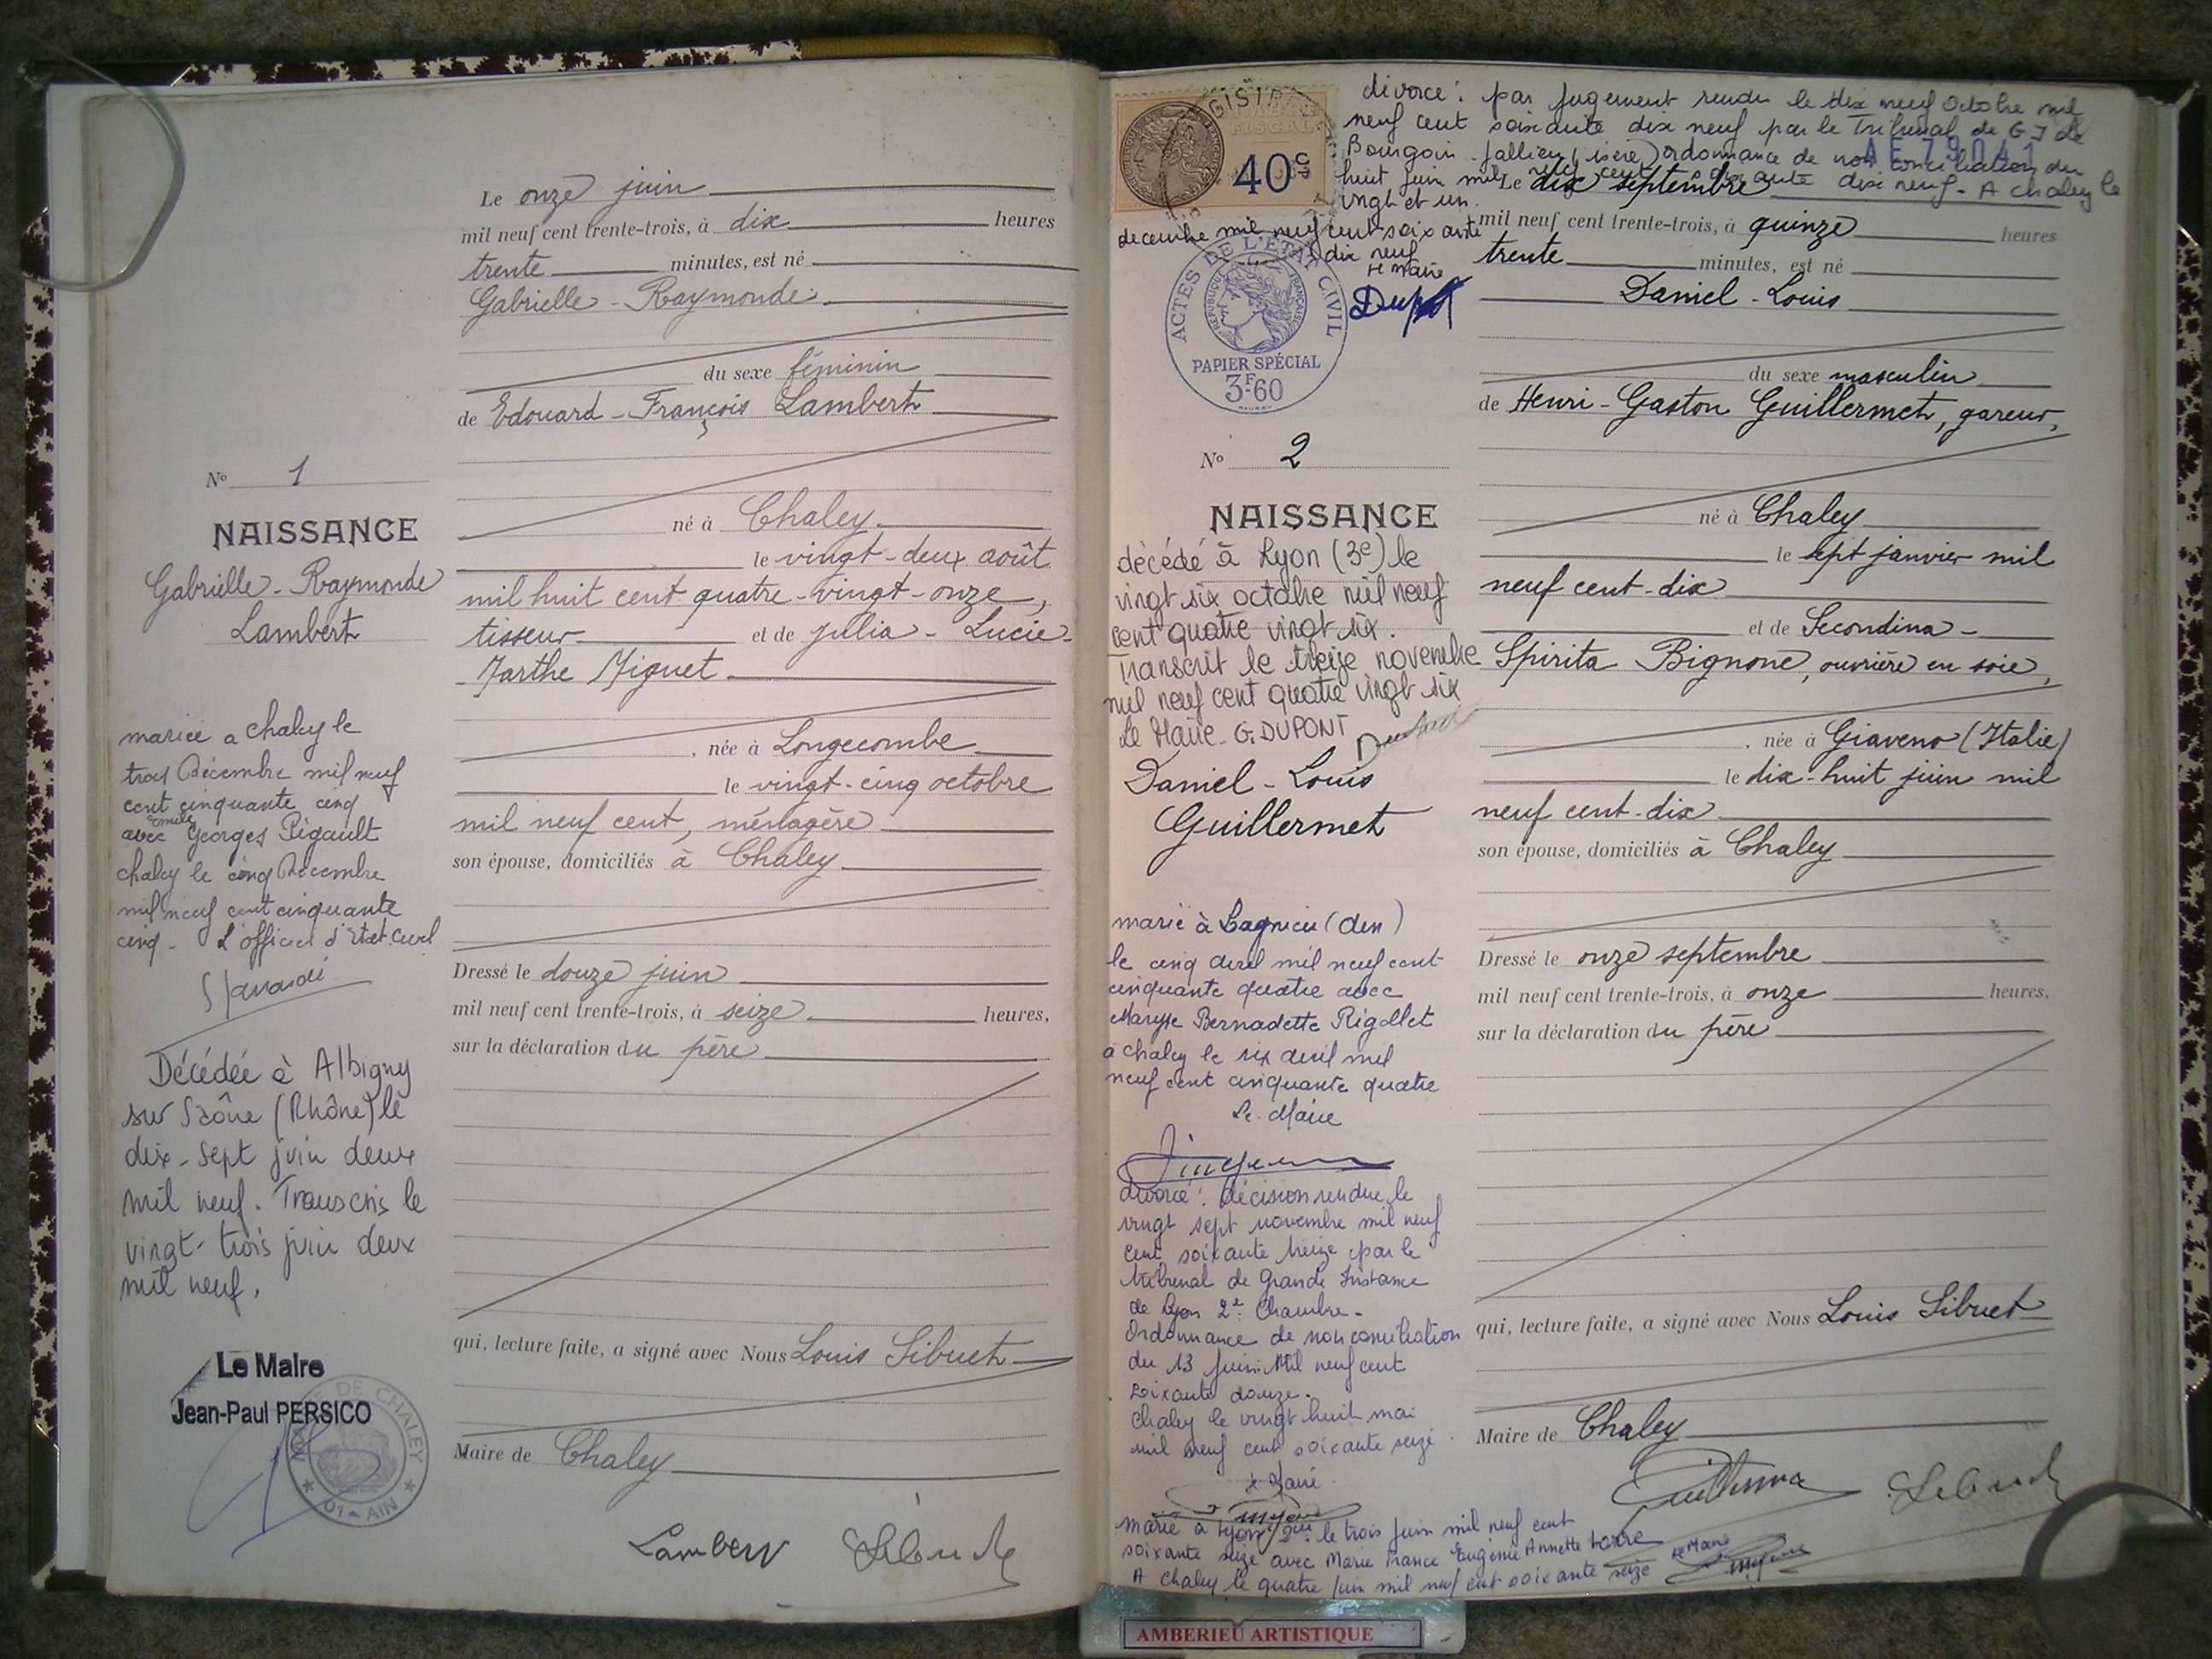 Le onze juin
mil neuf cent trente-trois, à dix heures
trente minutes, est né
Gabrielle - Raymonde
du sexe féminin
de Edouard - François Lambert
né à Chaley
le vingt-deux août
mil huit cent quatre-vingt-onze,
tisseur et de Julia - Lucie-
Marthe Miguet
née à Longecombe
le vingt-cinq octobre
mil neuf cent, ménagère
son épouse, domiciliés à Chaley
Dressé le douze juin
mil neuf cent trente-trois, à seize heures,
sur la déclaration du père
qui, lecture faite, a signé avec Nous Louis Sibuet
Maire de Chaley
Lambert
No 1
NAISSANCE
Gabrielle - Raymonde
Lambert
mariée a chaley le
trois Décembre mil neuf
cent cinquante cinq
avec Georges Pigault
chaley le cinq Décembre
mil neuf cent cinquante
cinq - L'officier d'Etat Civil
Décédée à Albigny
sur Saône (Rhône) le
dix-sept juin deux
mil neuf. Transcris le
vingt-trois juin deux
mil neuf.
Le Maire
Jean-Paul PERSICO
MAIRIE DE CHALEY
01 - AIN
40c
divorcé : par jugement rendu le dix neuf Octobre mil
neuf cent soixante dix neuf par le Tribunal de G I de
Bourgoin-Jallieu (isère) ordonnance de non conciliation du
huit juin mil neuf cent soixante dix neuf - A chaley le
vingt et un
decembre mil neuf cent soixante
dix neuf
le maire
ACTES DE L'ÉTAT CIVIL
RÉPUBLIQUE FRANÇAISE
PAPIER SPÉCIAL
3F60
No 2
NAISSANCE
décédé à Lyon (3e) le
vingt six octobre mil neuf
cent quatre vingt six.
Transcrit le treize novembre
mil neuf cent quatre vingt six
Le Maire G. DUPONT
Daniel - Louis
Guillermet
marié à Lagnieu (Ain)
le cinq avril mil neuf cent
cinquante quatre avec
Maryse Bernadette Rigollet
à chaley le six avril mil
neuf cent cinquante quatre
Le Maire
divorcé : décision rendue le
vingt sept novembre mil neuf
cent soixante treize par le
tribunal de Grande Instance
de Lyon 2e Chambre -
Ordonnance de non conciliation
du 13 Juin Mil neuf cent
soixante douze.
Chaley le vingt huit mai
mil neuf cent soixante seize
le Maire
marié à Lyon 2eme le trois Juin mil neuf cent
soixante seize avec Marie France Eugénie Annette
A chaley le quatre Juin mil neuf cent soixante seize le Maire
Le dix septembre
mil neuf cent trente-trois, à quinze heures
trente minutes, est né
Daniel - Louis
du sexe masculin
de Henri - Gaston Guillermet, gareur,
né à Chaley
le sept janvier mil
neuf cent-dix
et de Secondina-
Spirita Bignone, ouvrière en soie,
née à Giaveno (Italie)
le dix-huit juin mil
neuf cent-dix
son épouse, domiciliés à Chaley
Dressé le onze septembre
mil neuf cent trente-trois, à onze heures,
sur la déclaration du père
qui, lecture faite, a signé avec Nous Louis Sibuet
Maire de Chaley
AMBERIEU ARTISTIQUE